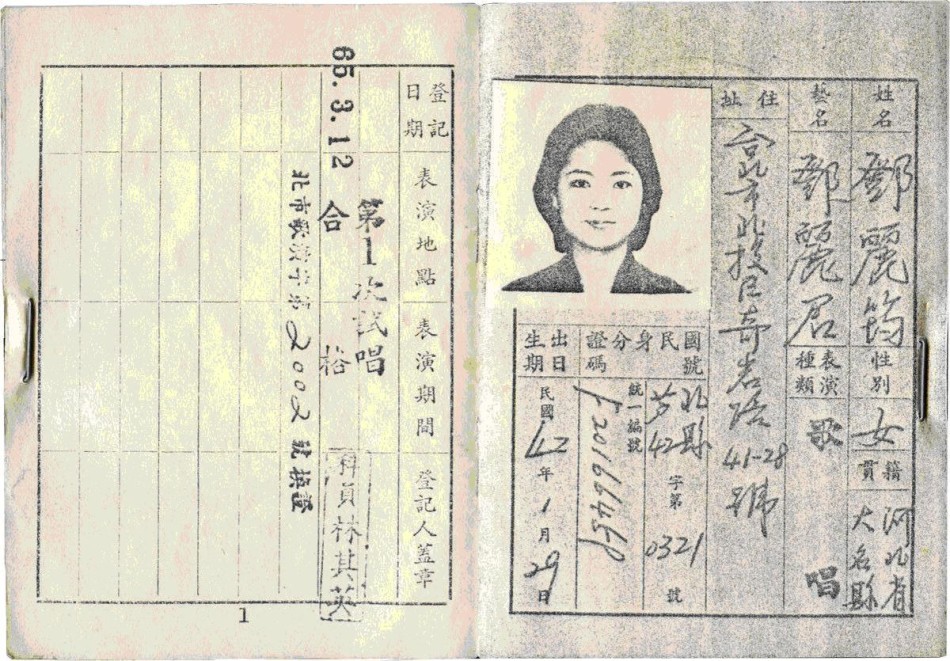 姓名 鄧麗筠
性別 女
籍貫 河北省大名縣
藝名 鄧麗君
表演種類 歌唱
住址 台北市北投區奇岩路41-28號
國民身分證號碼
北縣芦42字第0321號
統一編號
出生日期
民國42年1月29日
登記日期 表演地點 表演期間 登記人蓋章
65.3.12
第1次試唱
合格
科員林其英
2002號換證
1